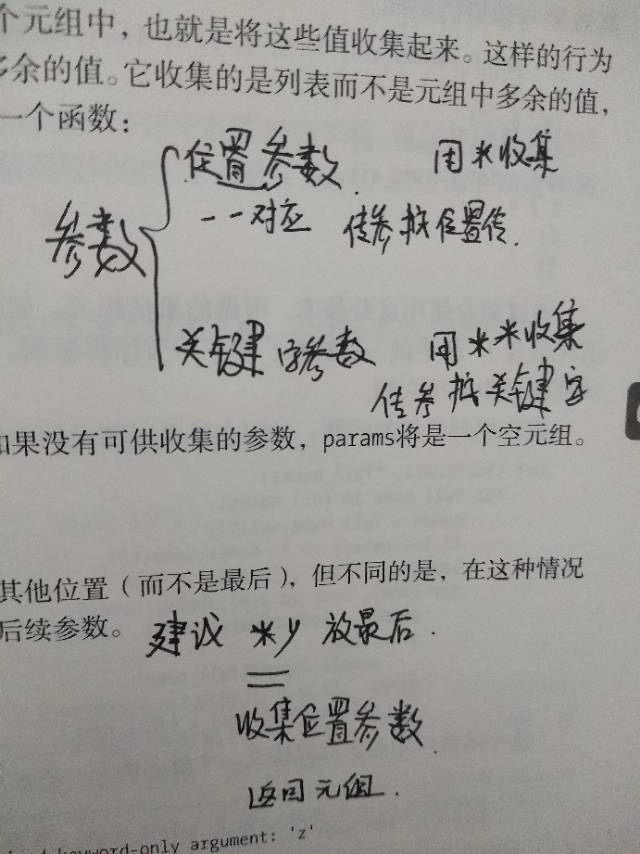 个元组中，也就是将这些值收集起来。这样的行为
多余的值。它收集的是列表而不是元组中多余的值，
一个函数：
位置参数 用*收集
一一对应 传参按位置传.
参数
关键字参数 用**收集
传参按关键字
如果没有可供收集的参数，params将是一个空元组。
其他位置（而不是最后），但不同的是，在这种情况
后续参数。 建议 *y 放最后.
收集位置参数
返回元组.
keyword-only argument: 'z'